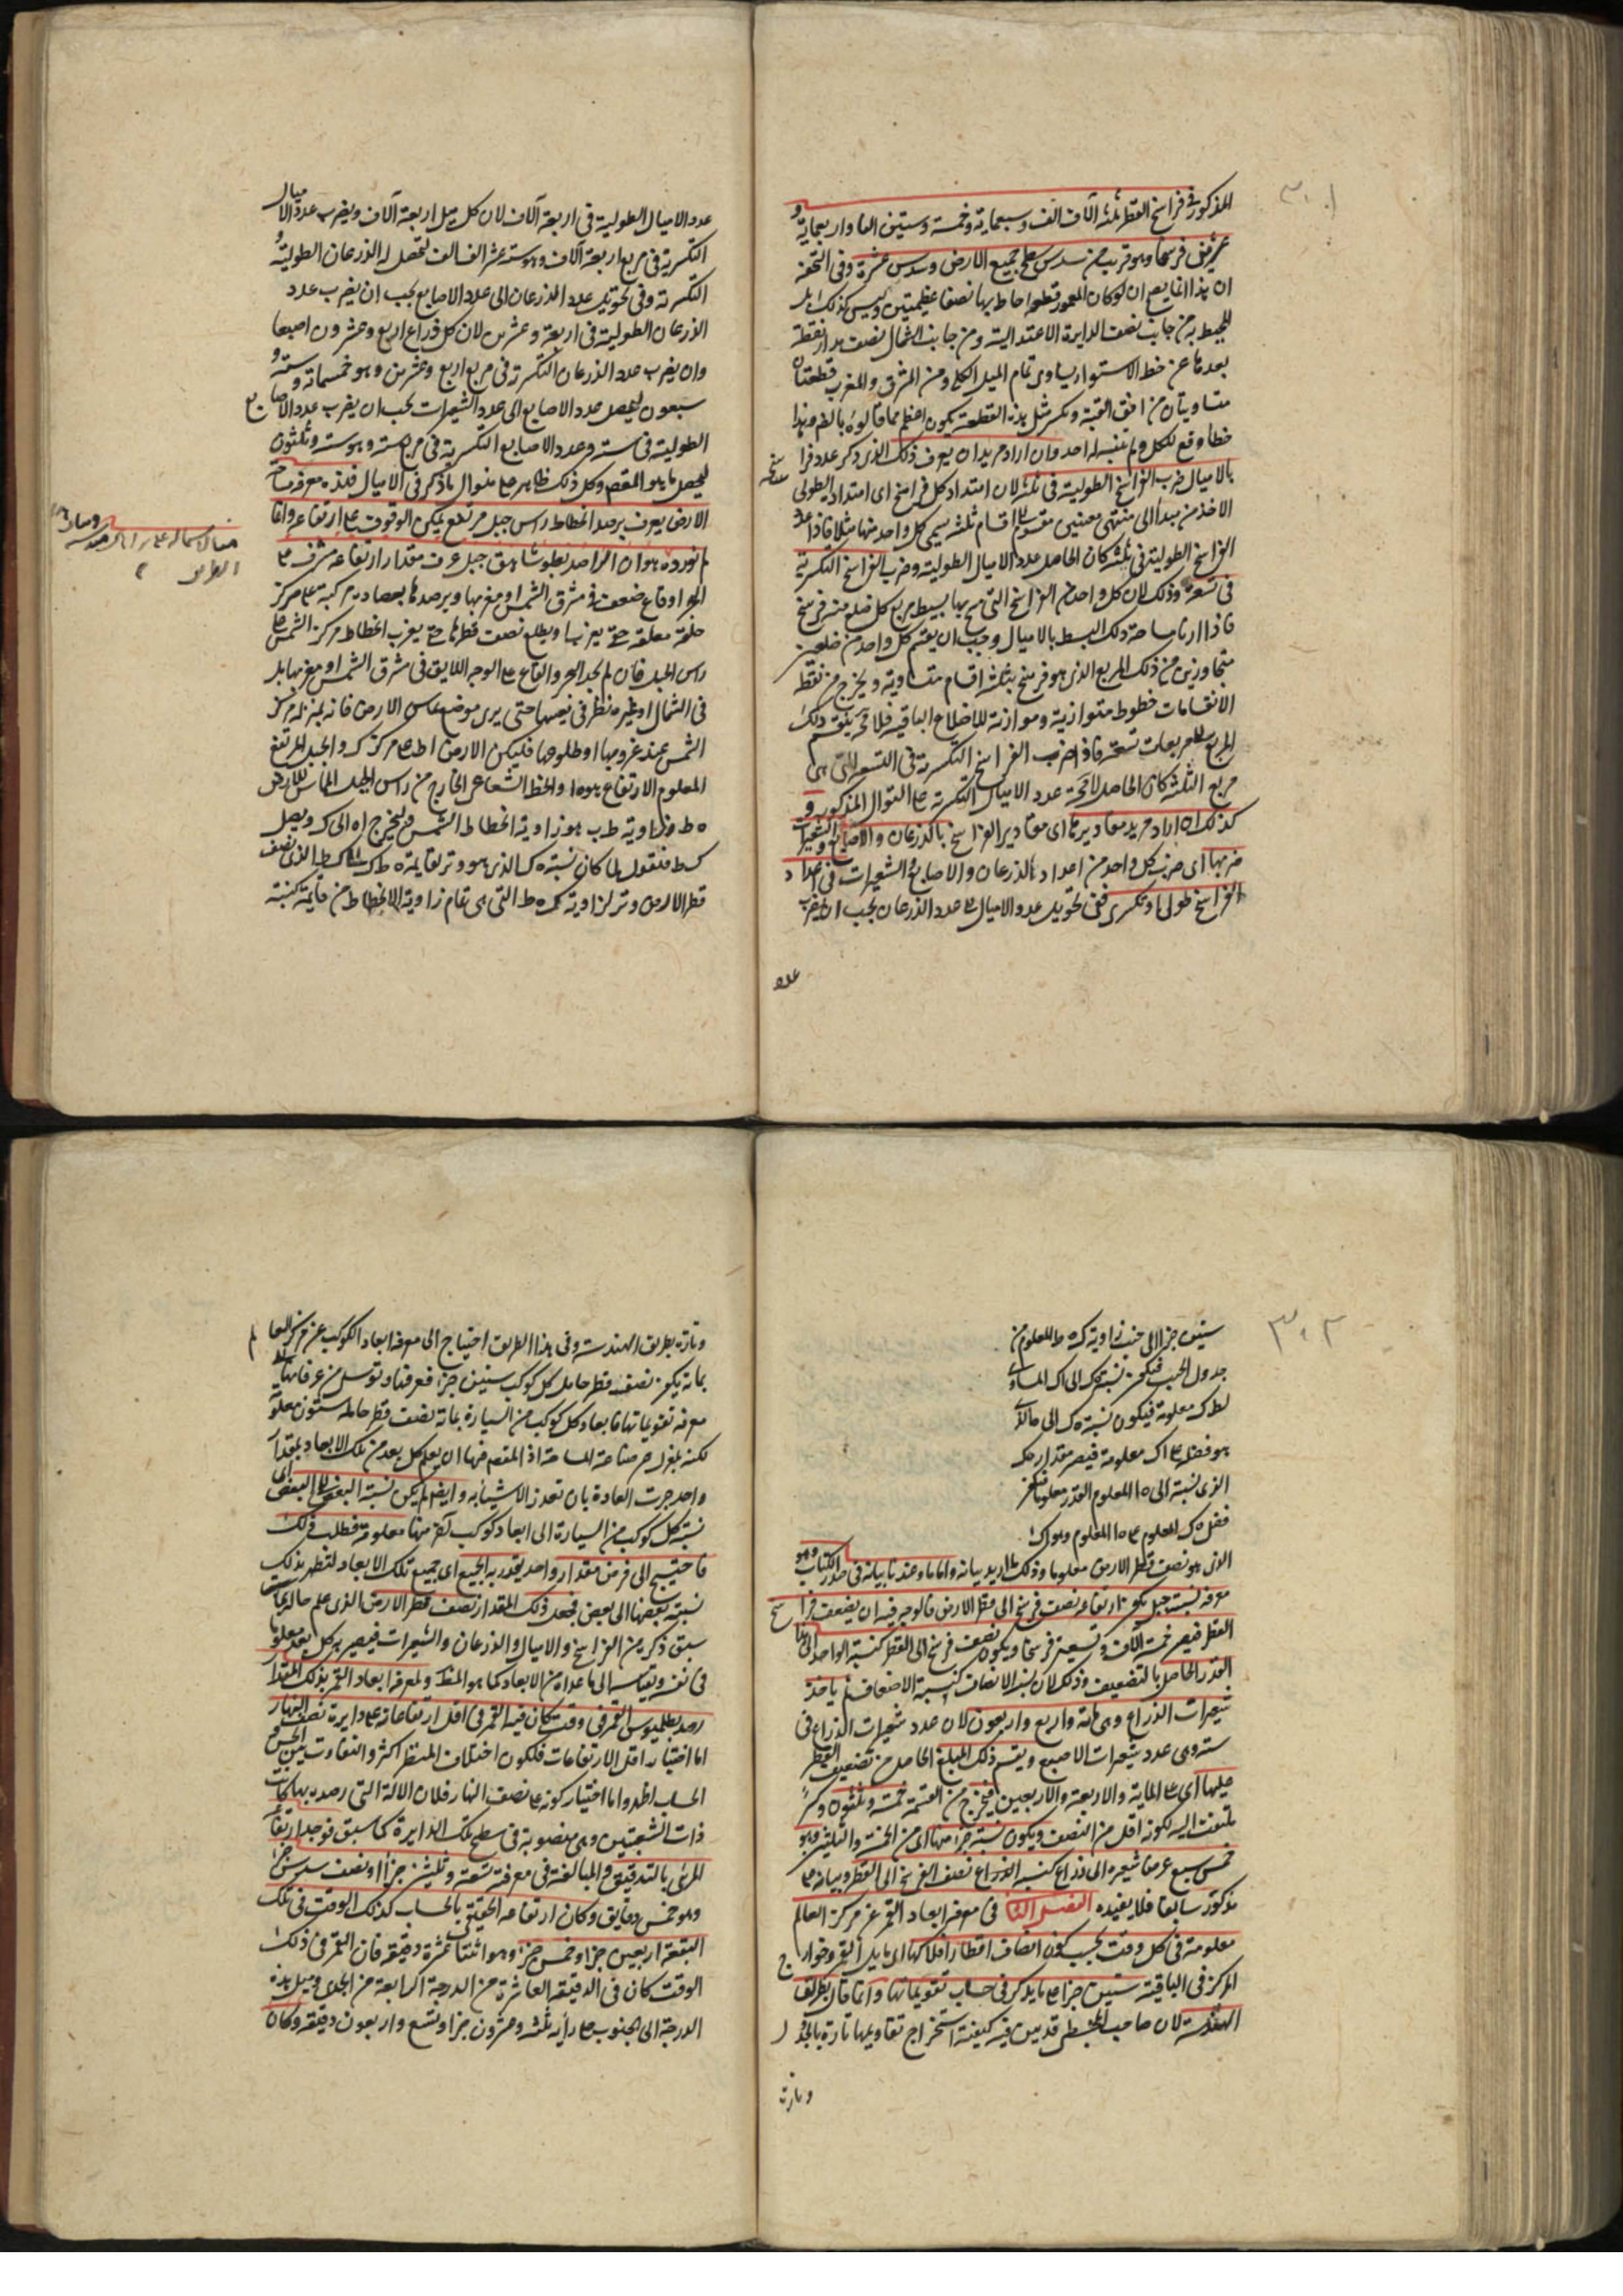 ٣٠١
المذكور في فراسخ القطر ثلثة آلاف الف وسبعماية وخمسة وستين الفا واربعماية و
عشرين فرسخا وهو قريب من سدس سطح جميع الارض وسدس عشره وفى التحفة
ان هذا انما يصح ان لو كان المعمور قطعة احاط بها نصفا عظيمتين وليس كذلك بل
المحيط به من جانب نصف الدايرة الاعتدالية ومن جانب الشمال نصف مدار نقطة
بعدها عن خط الاستواء يساوى تمام الميل الكلى ومن المشرق والمغرب قطعتان
متساويتان من افق القبة وتكسر مثل هذه القطعة يكون اعظم مما قالوه بالضم وهذا
خطا وقع للكل ولم يتنبه له احد وان اراد مريد ان يعرف ذلك الذى ذكر عدد فرا
سخه
بالاميال ضرب الفراسخ الطولية فى ثلثة لان امتداد كل فراسخ اى امتداد الطولى
الاخذ من مبدأ الى منتهى معينين مقسوم اقسام ثلثة يسمى كل واحد منها ميلا فاذا عد
الفراسخ الطولية فى ثلثة كان الحاصل عدد الاميال الطولية وضرب الفراسخ التكسرية
فى تسعة وذلك لان كل واحد من الفراسخ التى مسح بها بسيط مربع كل ضلع منه فرسخ
فاذا اردنا مساحة ذلك البسط بالاميال وجب ان يقسم كل واحد من ضلعين
متجاورين من ذلك المربع الذى هو فرسخ بثلثة اقسام متساوية ويخرج من نقط
الانقسامات خطوط متوازية وموازنة للاضلاع الباقية فلا محة ينقسم ذلك
المربع لمربعات تسعة فاذا ضرب الفراسخ التكسرية فى التسعة التى هى
مربع الثلثة كان الحاصل لا محة عدد الاميال التكسرية على التوال المذكور و
كذلك ان اراد مريد مقاديرها اى مقادير الفراسخ بالذرعان والاصابع والشعيرات
ضربها اى ضرب كل واحد من اعداد الذرعان والاصابع والشعيرات فى اعداد
الفراسخ طولى او تكسرى ففى تحويل عدد الاميال الى عدد الذرعان يجب ان يضرب
عدد
عدد الاميال الطولية فى اربعة آلاف لان كل ميل اربعة آلاف ويضرب عدد الاميال
التكسرية فى مربع اربعة آلاف وهو ستة عشر الف الف لتحصل له الذرعان الطولية و
التكسرية وفى تحويل عدد الذرعان الى عدد الاصابع يجب ان يضرب عدد
الذرعان الطولية فى اربعة وعشرين لان كل ذراع اربع وعشرون اصبعا
وان يضرب عدد الذرعان التكسرية فى مربع اربع وعشرين وهو خمسماته وستة و
سبعون ليحصل عدد الاصابع الى عدد الشعيرات يجب ان يضرب عدد الاصابع
الطولية فى ستة وعدد الاصابع التكسرية فى مربع ستة وهو ستة وثلثون
ليحصل ما هو المقصم وكل ذلك ظاهر على منوال ما ذكر فى الاميال فلنذه معرفة مساحة
الارض يعرف برصد انحطاط راس جبل مرتفع يمكن الوقوف على ارتفاعه واما
نورده هو ان الراصد يعلو شاهق جبل عرف مقدار ارتفاعه مشرف على
البحر او قاع ضعف فى مشرق الشمس او مغربها ويرصدها بعصادة مركبة على مركز
حلقة معلقة حتى يبزنها ويطلع نصف قطرها حتى يعرف انحطاط مركز الشمس على
راس الجبل فان لم يجد البحر والقاع على الوجه اللايق فى مشرق الشمس او مغربها بل
فى الشمال او غيره نظر فى نصبها حتى يرى موضع تماس الارض فانه بمنزلة مركز
الشمس عند غروبها او طلوعها فليكن الارض اط على مركز ك والجبل المرتفع
المعلوم الارتفاع هو ه ا والخط الشعاعى الخارج من راس الجبل المماس للارض
ه ط وزاوية ط ب هو زاوية انحطاط الشمس ونخرج ه ا الى ك ونصل
ك ط فنقول لما كان نسبة ه ك الذى هو وتر قايمة ه ط ك الى ك ط الذى نصف
قطر الارض وتر لزاوية ك ه ط التى هى تمام زاوية الانحطاط من قايمة كنسبة
٣٠٢
ستين جزءا الى جيب زاوية ك ه ط المعلوم من
جدول الجيب فيكون نسبة ه ك الى ا ك المساوى
لط ك معلومة فيكون نسبة ه ك الى ه ا الذى
هو فضله على ا ك معلومة فيصر مقدار ه ك
الذى نسبة الى ه ا المعلوم القدر معلوما فيكون
فضل ه ك المعلوم على ه ا المعلوم وهو ا ك
الذى هو نصف قطر الارض معلوما وذلك ما اريد بيانه واما ما وعدنا بيانه فى صدر الكتاب وهو
معرفة نسبة جبل يكون ارتفاعه نصف فرسخ الى قطر الارض فالوجه فيه ان يضعف فرا
سخ
القطر فيصر خمسة آلاف وتسعين فرسخا ويكون نصف فرسخ الى القطر كنسبة الواحد الى هذا
القدر الحاصل بالتضعيف وذلك لان نسبة الانصاف كنسبة الاضعاف ثم ياخذ
شعيرات الذراع وهى ماية واربع واربعون لان عدد شعيرات الذراع فى
ستة وهى عدد شعيرات الاصبع ويقسم ذلك المبلغ الحاصل من تضعيف القطر
عليها اى على الماية والاربعة والاربعين فيخرج من القسمة خمسة وثلثون وكسر
يلتفت اليه لكونه اقل من النصف ويكون نسبة جزء منها الى من الخمسة والثلثين وهو
خمس سبع عرض شعيرة الى ذراع كنسبة الذراع نصف الفرسخ الى القطر وبيانه م
مذكور سابقا فلا يفيده الفصل الثا فى معرفة ابعاد القمر عن مركز العالم
معلومة فى كل وقت بحسب كون انصاف اقطار افلاكها اى مايل القمر وخوارج
المركز فى الباقية ستين جزءا على ما يذكر فى حساب تقويماتها وانما قال بطريق
الهندسة لان صاحب المجسطى قد بين فيه كيفية استخراج تقاويمها تارة بالجداول
وتارة
وتارة بطريق الهندسة وفى هذا الطريق احتياج الى معرفة ابعاد الكوكب عن مركز العالم
بما به يكون نصف قطر حامل كل كوكب ستين جزءا فعرفناه توسل من عرفانها الى
معرفة تقويماتها فابعاد كل كوكب من السيارة بما به نصف قطر حامله ستون معلومة
لكنه بمعزل عن صناعة المساحة اذ المقصم فيها ان يعلم كل بعد من تلك الابعاد بمقدار
واحد جرت العادة بان تعد ز الاشياء به وايضا لم يكن نسبة البعض الى البعض اى
نسبة كل كوكب من السيارة الى ابعاد كوكب آخر منها معلومة فطلب ذلك
فاحتيج الى فرض مقدار واحد يقدر به الجميع اى جميع تلك الابعاد لتظهر بذلك
نسبة بعضها الى بعض فجعل ذلك المقدار نصف قطر الارض الذى علم حاله بما
سبق ذكره من الفراسخ والاميال والذرعان والشعيرات فيصير به كل بعد معلوما
فى نفسه وتقيسه الى ما عداه من الابعاد كما هو المط ولمعرفة ابعاد القمر بذلك المقدار
رصد بطلميوس القمر فى وقت كان فيه القمر فى اقل ارتفاعاته على دايرة نصف النهار
اما اختيار اقل الارتفاعات فلكون اختلاف المنظر اكثر والتفاوت بين الحس و
الحساب اظهر واما اختيار كونه على نصف النهار فلان الالة التى رصد بها كانت
ذات الشعبتين وهى منصوبة فى سطح تلك الدايرة كما سبق فوجد ارتفاعه
المرئى بالتدقيق والمبالغة فى معرفة تسعة وثلثين جزءا ونصف سدس جزء
وهو خمس دقايق وكان ارتفاعه الحقيقى بالحساب كذلك الوقت فى تلك
البقعة اربعين جزءا وخمس جزء وهو اثنتا عشرة دقيقة فان القمر فى ذلك
الوقت كان فى الدقيقة العاشرة من الدرجة الرابعة من الجدى وميل هذه
الدرجة الى الجنوب على رأيه ثلثة وعشرون جزءا وتسع واربعون دقيقة وكان